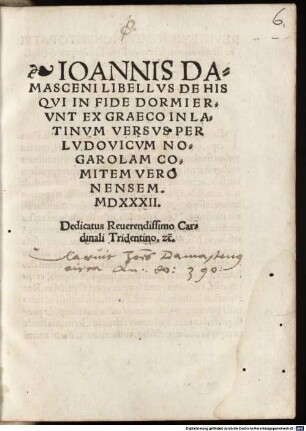 6.
IOANNIS DA-
MASCENI LIBELLVS DE HIS
QVI IN FIDE DORMIER-
VNT EX GRAECO IN LA-
TINVM VERSVS PER
LVDOVICVM NO-
GAROLAM CO-
MITEM VERO
NENSEM.
MDXXXII.
Dedicatus Reuerendissimo Car-
dinali Tridentino, zc̄.
Damascenus
circa An. 390.